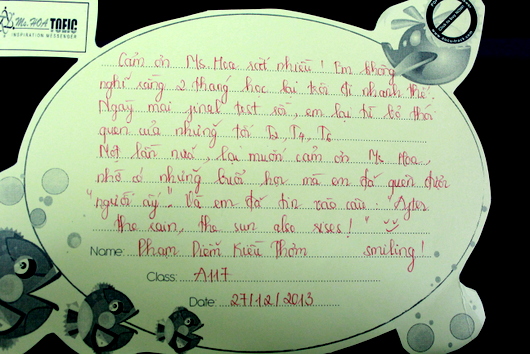 Ms. HOA TOEIC
INSPIRATION MESSENGER
Cảm ơn Ms. Hoa rất nhiều! Em không
nghĩ rằng 2 tháng học lại trôi đi nhanh thế.
Ngày mai final test rồi, em lại từ bỏ thói
quen của những tối T2, T4, T6
Một lần nữa, lại muốn cảm ơn Ms Hoa,
nhờ có những buổi học mà em đã quên được
"người ấy". Và em đã tin vào câu: "After
the rain, the sun also rises!"
Name: Phạm Diễm Kiều Thơm smiling!
Class: A117
Date: 27/12/2013